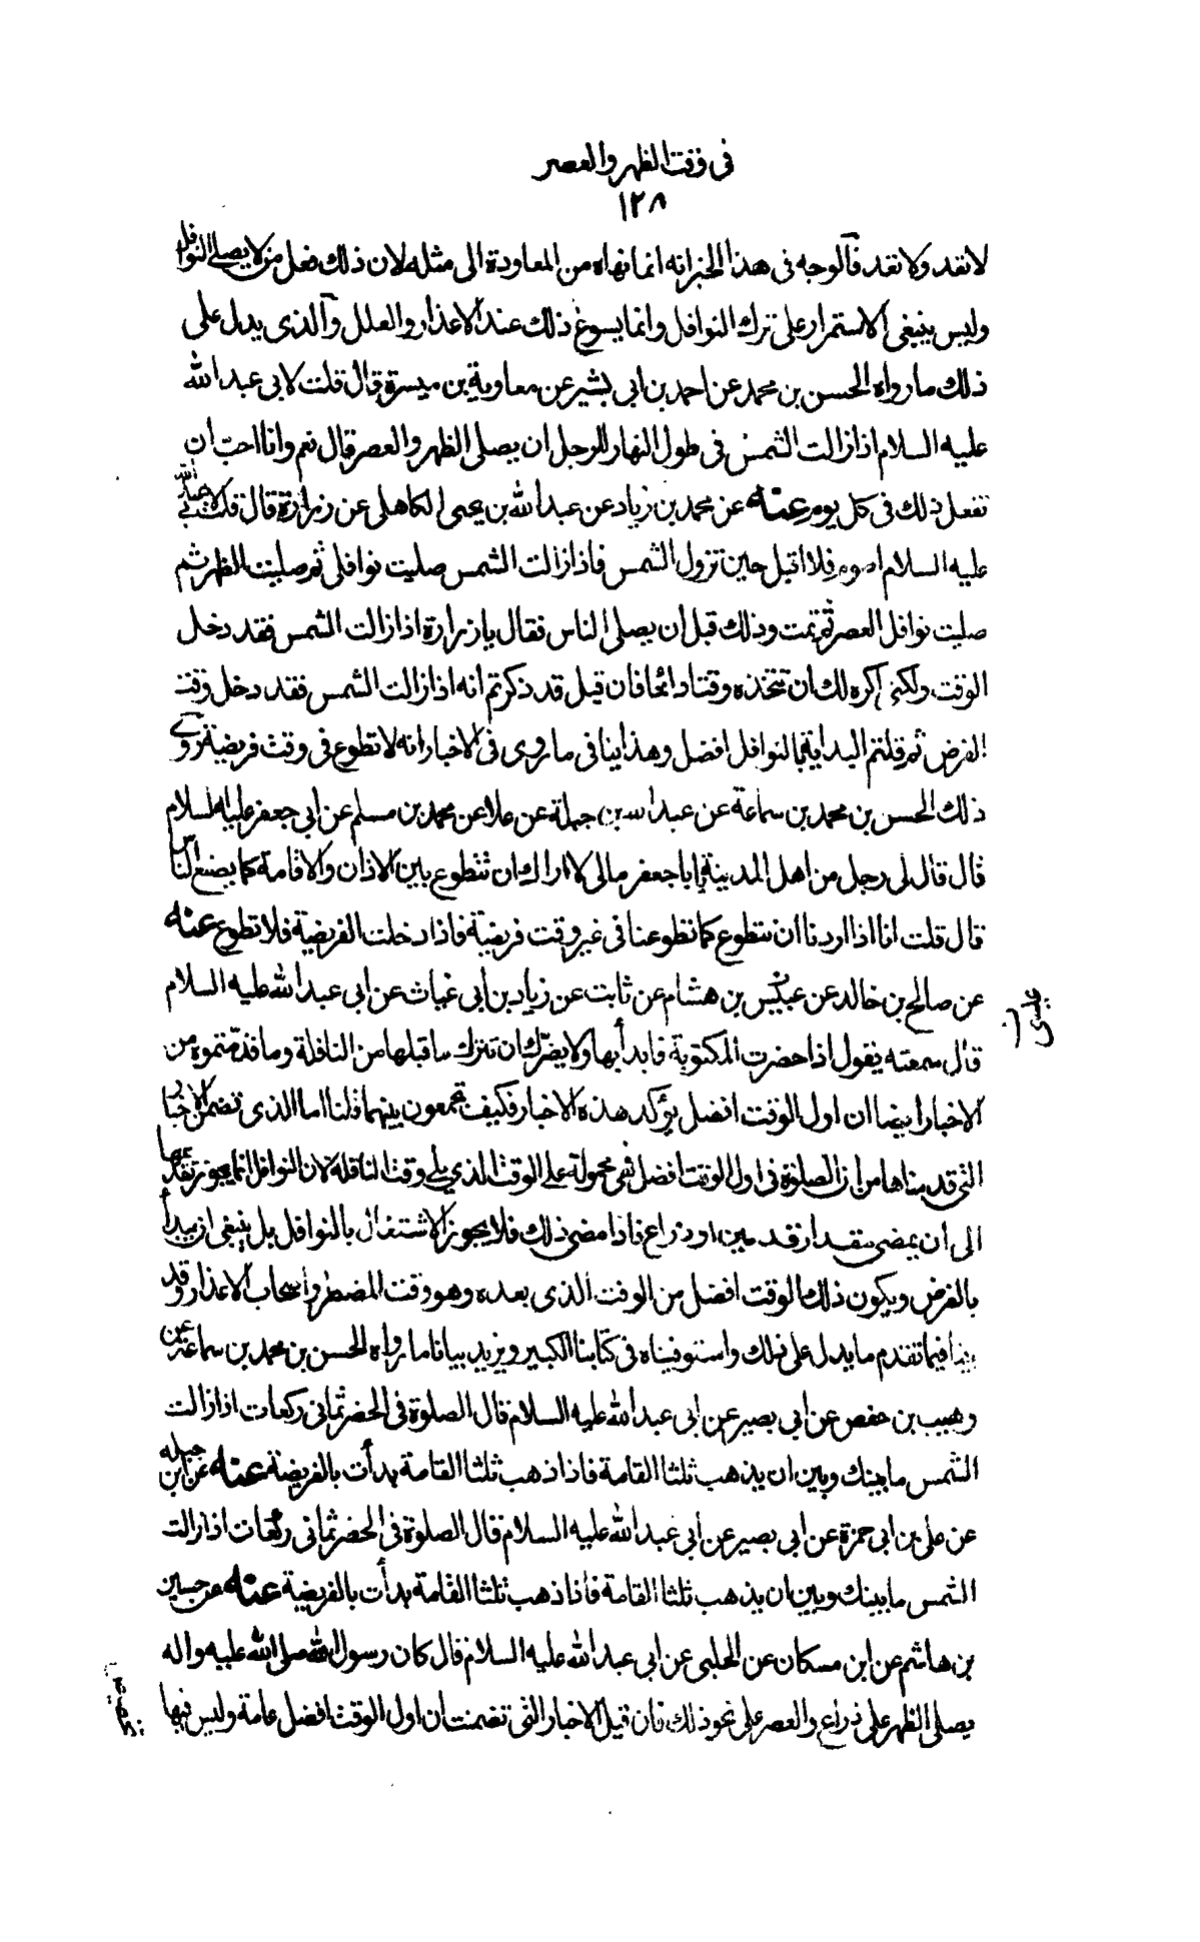 فى وقت الظهر والعصر
١٢٨
لا نقد ولا نقد فآلوجه فى هذا الخبر انه انما نهاه من المعاودة الى مثله لان ذلك فعل من لا يصلى النوافل
وليس ينبغى الاستمرار على ترك النوافل وانما يسوغ ذلك عند الاعذار والعلل وآلذى يدل على
ذلك ما رواه الحسن بن محمد عن احمد بن ابى بشير عن معاوية بن ميسرة قال قلت لابى عبد الله
عليه السلام اذا زالت الشمس فى طول النهار للرجل ان يصلى الظهر والعصر قال نعم وانا احب ان
تفعل ذلك فى كل يوم عنه عن محمد بن زياد عن عبد الله بن يحيى الكاهلى عن زرارة قال قلت لابى عبد الله
عليه السلام اصوم فلا اقيل حين تزول الشمس فاذا زالت الشمس صليت نوافلى ثم صليت الظهر ثم
صليت نوافل العصر ثم نمت وذلك قبل ان يصلى الناس فقال يا زرارة اذا زالت الشمس فقد دخل
الوقت ولكنى اكره لك ان تتخذه وقتا دائما فان قيل قد ذكرتم انه اذا زالت الشمس فقد دخل وقت
الفرض ثم قلتم البداية بالنوافل افضل وهذا ينافى ما روى فى الاخبار انه لا تطوع فى وقت فريضة روى
ذلك الحسن بن محمد بن سماعة عن عبد الله بن جبلة عن علا عن محمد بن مسلم عن ابى جعفر عليه السلام
قال قال لى رجل من اهل المدينة يا ابا جعفر مالى لا اراك ان تتطوع بين الاذان والاقامة كما يصنع الناس
قال قلت انا اذا اردنا ان نتطوع كما تطوعنا فى غير وقت فريضة فاذا دخلت الفريضة فلا تطوع عنه
عن صالح بن خالد عن عبيس بن هشام عن ثابت عن زياد بن ابى غياث عن ابى عبد الله عليه السلام
عيسى خ
قال سمعته يقول اذا حضرت المكتوبة فابدأ بها ولا يضرك ان تترك ما قبلها من النافلة وما قدمتموه من
الاخبار ايضا ان اول الوقت افضل يؤكد هذه الاخبار فكيف تجمعون بينهما قلنا اما الذى تضمن الاخبار
التى قدمناها من ان الصلوة فى اول الوقت افضل فهى محمولة على الوقت الذى يلى وقت النافلة لان النوافل انما يجوز تقديمها
الى ان يمضى مقدار قدمين او ذراع فاذا مضى ذلك فلا يجوز الاشتغال بالنوافل بل ينبغى ان يبدأ
بالفرض ويكون ذلك الوقت افضل من الوقت الذى بعده وهو وقت المضطر واصحاب الاعذار وقد
بينا فيما تقدم ما يدل على ذلك واستوفيناه فى كتابنا الكبير ويزيد بيانا ما رواه الحسن بن محمد بن سماعة عن
وهيب بن حفص عن ابى بصير عن ابى عبد الله عليه السلام قال الصلوة فى الحضر ثمانى ركعات اذا زالت
الشمس ما بينك وبين ان يذهب ثلثا القامة فاذا ذهب ثلثا القامة بدأت بالفريضة عنه عن ابن جبلة
عن على بن ابى حمزة عن ابى بصير عن ابى عبد الله عليه السلام قال الصلوة فى الحضر ثمانى ركعات اذا زالت
الشمس ما بينك وبين ان يذهب ثلثا القامة فاذا ذهب ثلثا القامة بدأت بالفريضة عنه عن حسين
بن هاشم عن ابن مسكان عن الحلبى عن ابى عبد الله عليه السلام قال كان رسول الله صلى الله عليه واله
يصلى الظهر على ذراع والعصر على نحو ذلك فان قيل الاخبار التى تضمنت ان اول الوقت افضل عامة وليس فيها